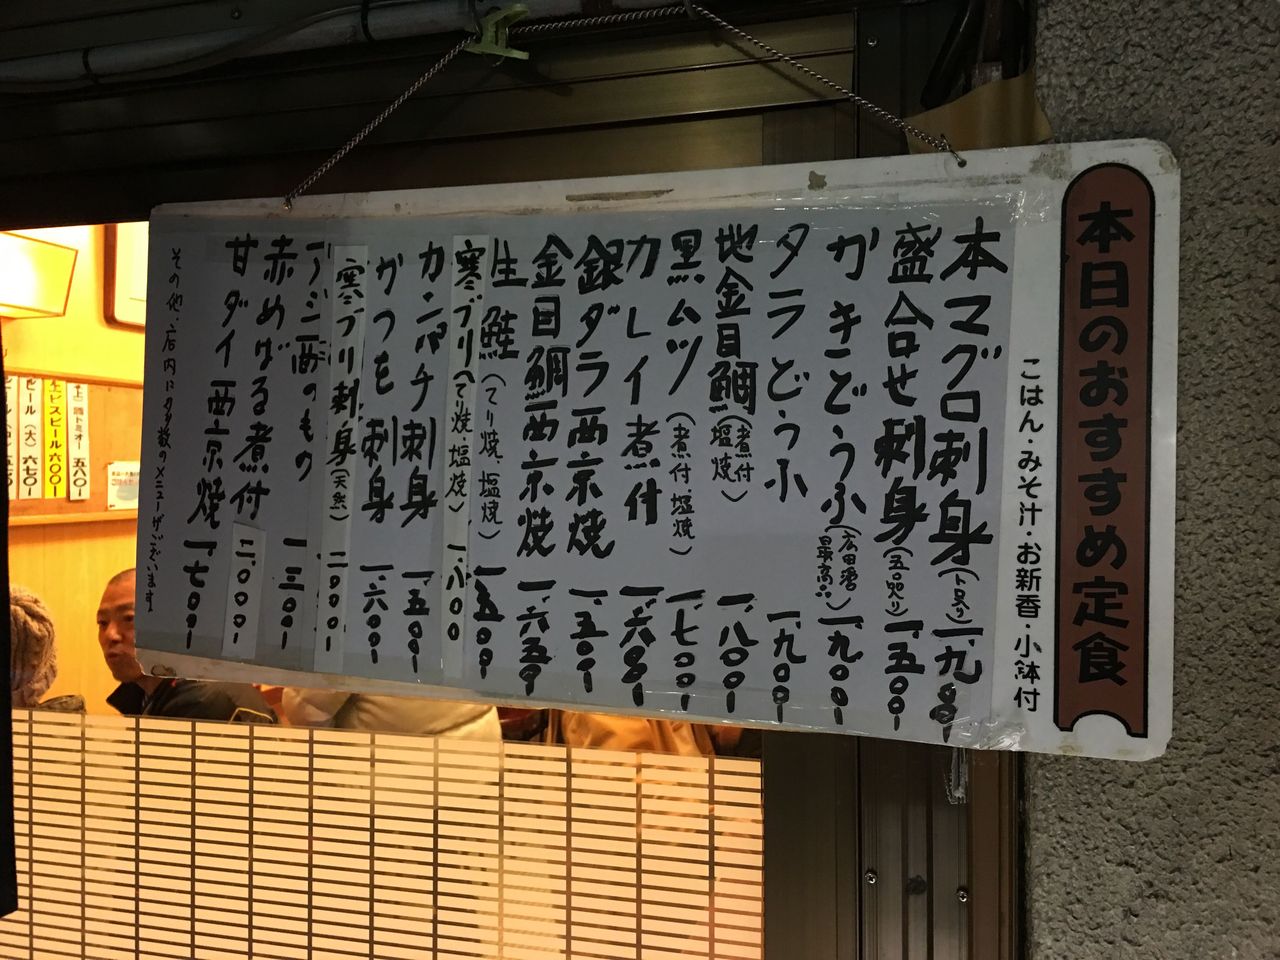 本日のおすすめ定食
ごはん・みそ汁・お新香・小鉢付
本マグロ刺身(トロ入り)一、九〇〇-
盛合せ刺身(五点盛り)一、五〇〇-
かきどうふ(広田湾最高!!)一、九〇〇-
タラどうふ 一、九〇〇-
地金目鯛(煮付 塩焼)一、八〇〇-
黒ムツ(煮付 塩焼)一、七〇〇-
カレイ煮付 一、六〇〇-
銀ダラ西京焼 一、五〇〇-
金目鯛西京焼 一、六五〇-
生鮭(てり焼、塩焼)一、五〇〇-
寒ブリ(てり焼・塩焼)一、八〇〇
カンパチ刺身 一、五〇〇-
かつを刺身 一、六〇〇-
寒ブリ刺身(天然)二、〇〇〇-
アジ酢のもの 一、三〇〇-
赤めばる煮付 二、〇〇〇-
甘ダイ西京焼 一、七〇〇-
その他・店内に多数のメニューがございます
トミオー 五八〇-
ビスビール 六〇〇-
ビール(大)六七〇-